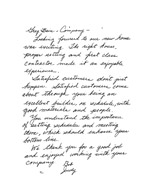 Hey Dave - Company -
Looking forward to our new home
was exciting. The right house,
proper setting and first class
contractor made it an enjoyable
experience.
Satisfied customers don't just
happen. Satisfied customers come
about through your being an
excellent builder, on schedule, with
good materials and people.
You understand the importance
of setting schedules and meeting
them, which should enhance your
bottom line.
We thank you for a good job
and enjoyed working with your
company.
Judy